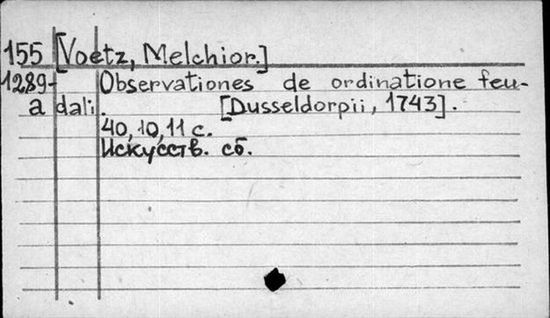 155 [Voetz, Melchior.]
1289- Observationes de ordinatione feu-
a dali. [Dusseldorpii, 1743].
40, 10, 11 с.
Искусств. сб.